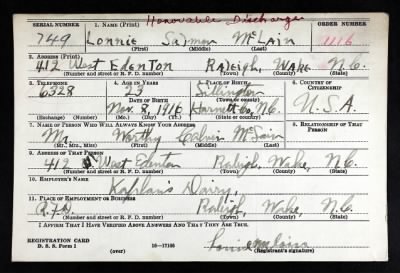 Honorable Discharge
SERIAL NUMBER 1. NAME (Print) ORDER NUMBER
749 Lonnie Salmon McLain 1116
(First) (Middle) (Last)
2. ADDRESS (Print)
412 West Edenton Raleigh, Wake N.C.
(Number and street or R. F. D. number) (Town) (County) (State)
3. TELEPHONE 4. AGE IN YEARS 5. PLACE OF BIRTH 6. COUNTRY OF CITIZENSHIP
6328 23 Lillington
DATE OF BIRTH (Town or county)
Nov. 8, 1916 Harnett Co, N.C. U.S.A.
(Exchange) (Number) (Mo.) (Day) (Yr.) (State or country)
7. NAME OF PERSON WHO WILL ALWAYS KNOW YOUR ADDRESS 8. RELATIONSHIP OF THAT PERSON
Mr. Worthy McLain
(Mr., Mrs., Miss) (First) (Middle) (Last)
9. ADDRESS OF THAT PERSON
412 West Edenton Raleigh, Wake, N.C.
(Number and street or R. F. D. number) (Town) (County) (State)
10. EMPLOYER'S NAME
11. PLACE OF EMPLOYMENT OR BUSINESS
Raleigh, Wake, N.C.
(Number and street or R. F. D. number) (Town) (County) (State)
I AFFIRM THAT I HAVE VERIFIED ABOVE ANSWERS AND THAT THEY ARE TRUE.
REGISTRATION CARD
D. S. S. Form 1 (over) 16-17105